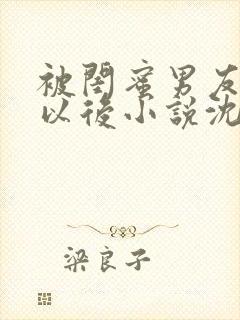 被閨蜜男友
以後小説沈
梁良子